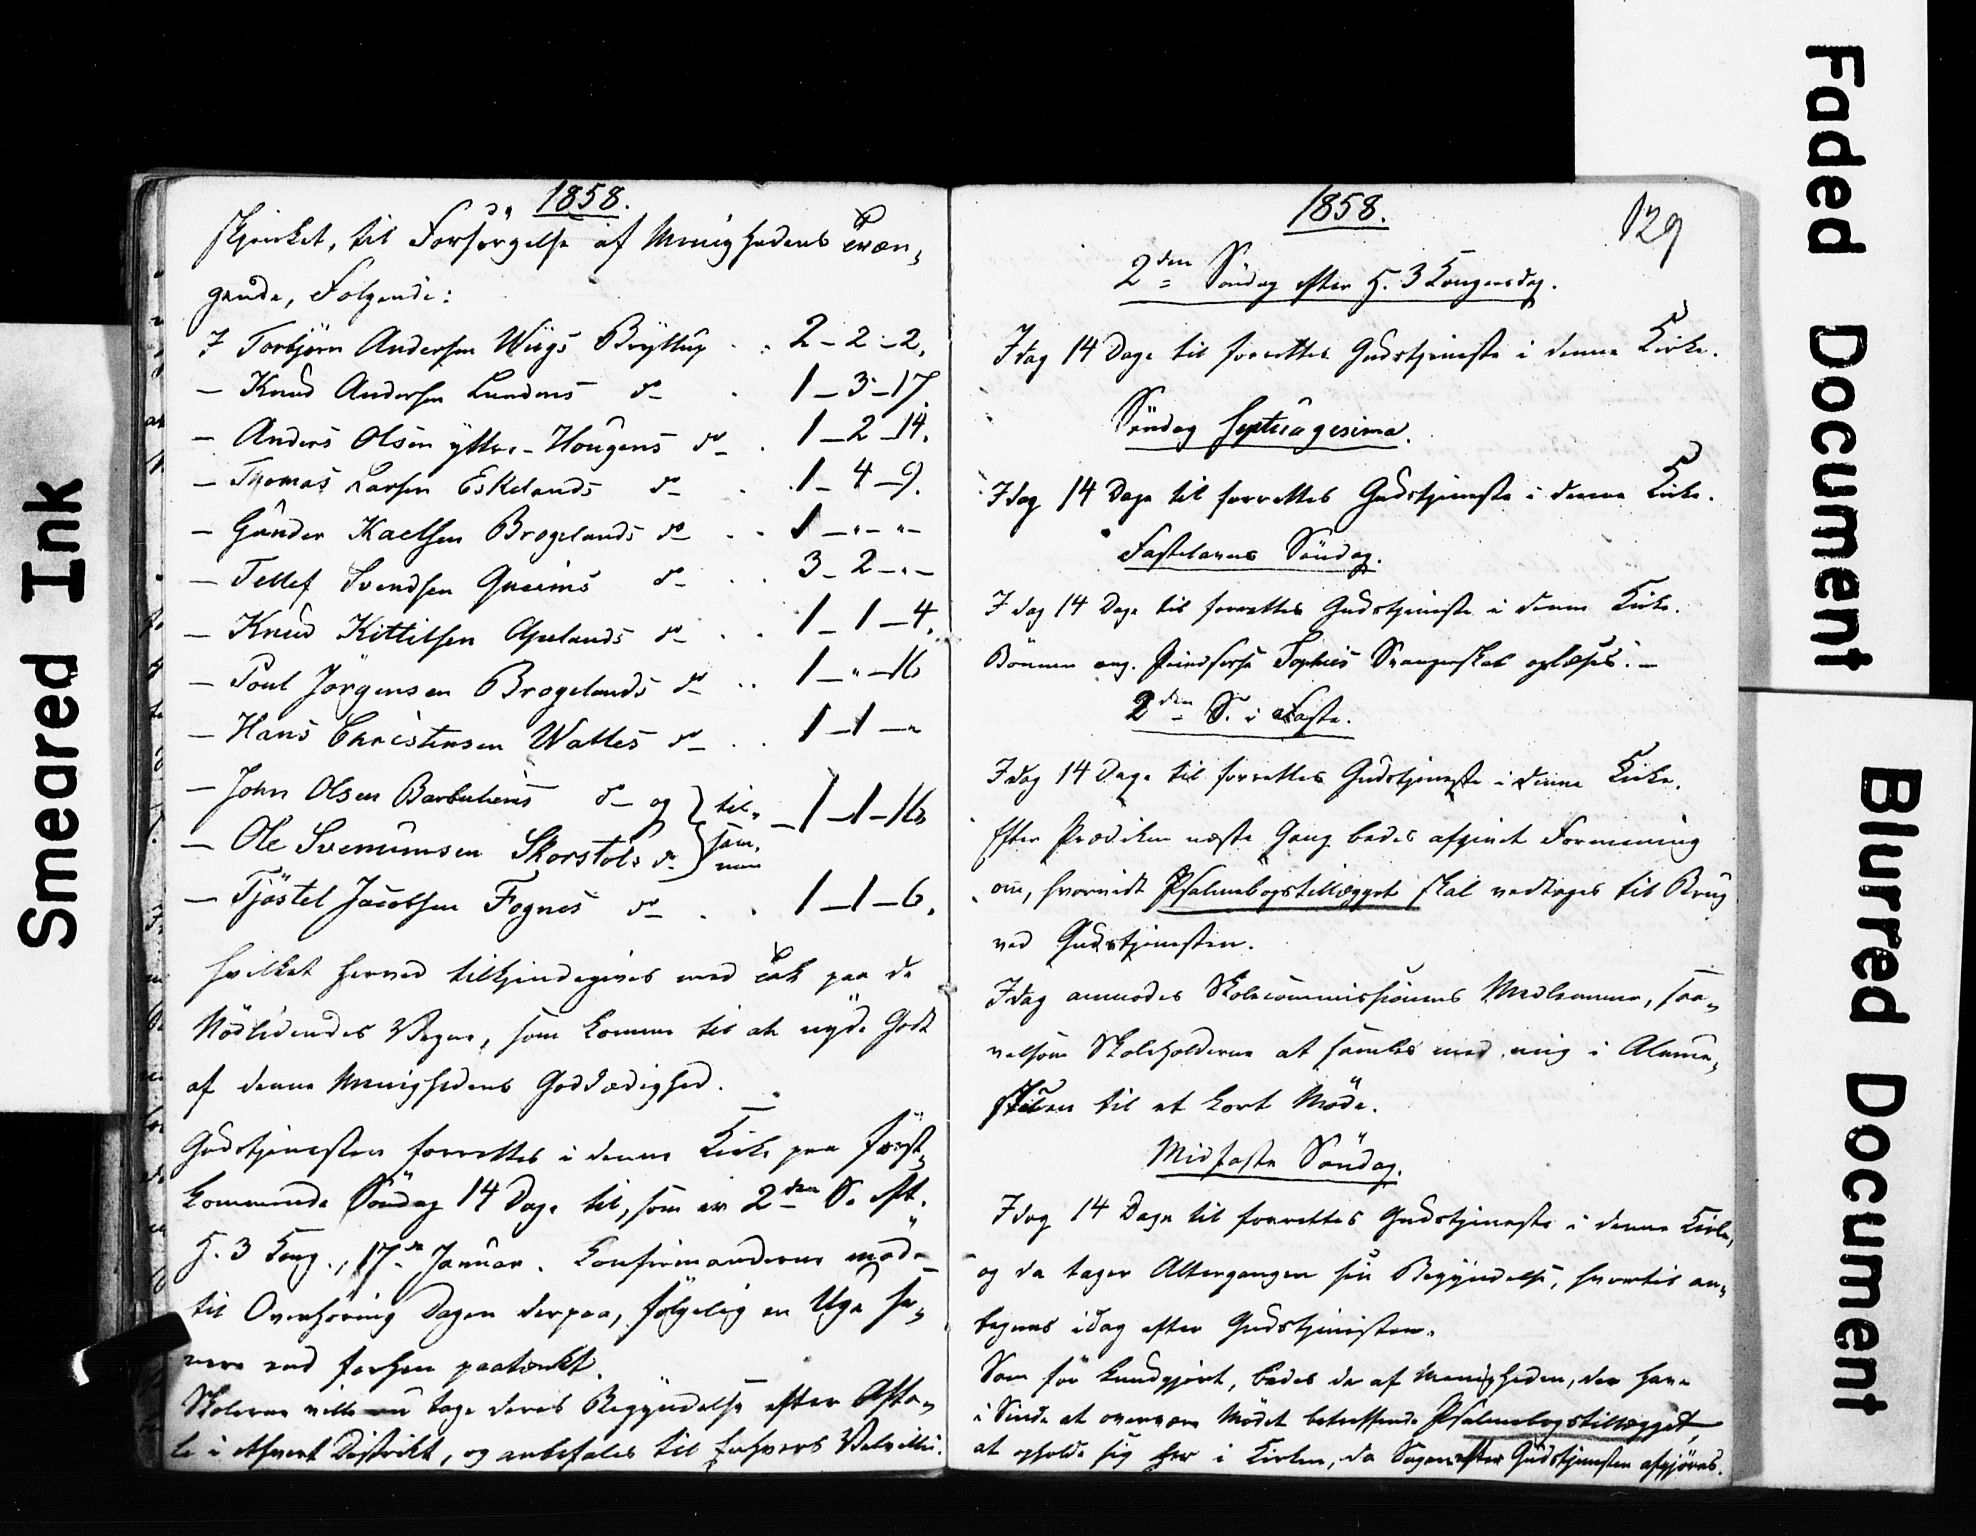 1858.
skjenket, til Forsørgelse af Menighedens Træn-
gende, Følgende:
I Torbjörn Andersen Wiigs Bryllup . . 2 - 2 - 2.
- Knud Andersen Lundens do . 1 - 3 - 17.
- Anders Olsen ytter-Hougens do . 1 - 2 - 14.
- Thomas Larsen Eskelands do . 1 - 4 - 9.
- Gunder Kaelsen Brogelands do . . 1 - " - "
- Tellef Svendsen Greims do . . 3 - 2 - "
- Knud Kittilsen Apelands do . . 1 - 1 - 4.
- Poul Jörgensen Brogelands do . . 1 - " - 16
- Hans Christensen Walles do . . 1 - 1 - "
- John Olsen Barbuheiis do og } til-
- Ole Svenumsen Skorstøls do } sam-men - 1 - 1 - 16
- Tjöstel Jacobsen Fognes do . . 1 - 1 - 6.
hvilket herved tilkjendegives med Tak paa de
Nödlidendes Vegne, som komme til at nyde Godt
af denne Menighedens Goddædighed.
Gudstjenesten forrettes i denne Kirke paa först-
kommende Söndag 14 Dage til, som er 2den S. eft.
H. 3 Kong., 17de Januar. Konfirmanderne möde
til Overhöring Dagen derpaa, fölgelig en Uge se-
nere end forhen paatænkt.
Skolerne ville nu tage deres Begyndelse efter Afta-
le i ethvert Distrikt, og anbefales til Enhvers Velvillie.
1858.
129
2den Söndag efter H. 3 Kongersdag.
I dag 14 Dage til forrettes Gudstjeneste i denne Kirke.
Söndag Septuagesima.
I dag 14 Dage til forrettes Gudstjeneste i denne Kirke.
Fastelavns Söndag.
I dag 14 Dage til forrettes Gudstjeneste i denne Kirke.
Bönnen ang. Prindsesse Sophies Svangerskab oplæses. -
2den S. i Faste.
I dag 14 Dage til forrettes Gudstjeneste i denne Kirke.
Efter Prædiken næste Gang bedes afgivet Formening
om, hvorvidt Psalmebogstillægget skal vedtages til Brug
ved Gudstjenesten.
I dag anmodes Skolecommissionens Medlemmer, saa-
velsom Skoleholderne at samles med mig i Almue-
stuen til et kort Möde.
Midfaste Söndag.
I dag 14 Dage til forrettes Gudstjeneste i denne Kirke,
og da tager Altergangen sin Begyndelse, hvortil an-
tegnes idag efter Gudstjenesten.
Som för kundgjort, bedes de af Menigheden, der have
i Sinde at overvære Mödet betreffende Psalmebogstillægget,
at opholde sig her i Kirken, da Sagen efter Gudstjenesten afgjöres.
Smeared Ink
Faded Document
Blurred Document